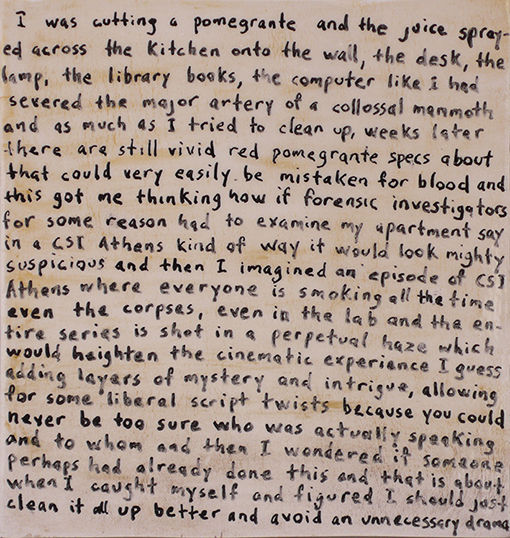 I was cutting a pomegrante and the juice spray-
ed across the kitchen onto the wall, the desk, the
lamp, the library books, the computer like I had
severed the major artery of a collossal mammoth
and as much as I tried to clean up, weeks later
there are still vivid red pomegrante specs about
that could very easily be mistaken for blood and
this got me thinking how if forensic investigators
for some reason had to examine my apartment say
in a CSI Athens kind of way it would look mighty
suspicious and then I imagined an episode of CSI
Athens where everyone is smoking all the time
even the corpses, even in the lab and the en-
tire series is shot in a perpetual haze which
would heighten the cinematic experience I guess
adding layers of mystery and intrigue, allowing
for some liberal script twists because you could
never be too sure who was actually speaking
and to whom and then I wondered if someone
perhaps had already done this and that is about
when I caught myself and figured I should just
clean it all up better and avoid an unnecessary drama